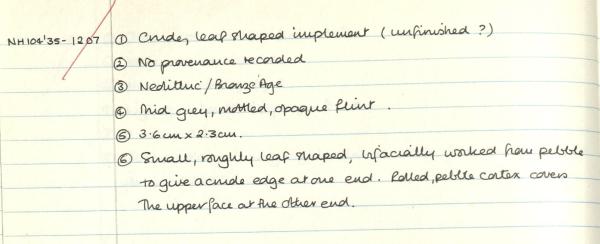 NH104'35-1207 ① Crude, leaf shaped implement (unfinished?)
② No provenance recorded
③ Neolithic/Bronze Age
④ Mid grey, mottled, opaque flint.
⑤ 3.6cm x 2.3cm.
⑥ Small, roughly leaf shaped, bifacially worked from pebble
to give a crude edge at one end. Rolled, pebble cortex covers
The upper face at the other end.